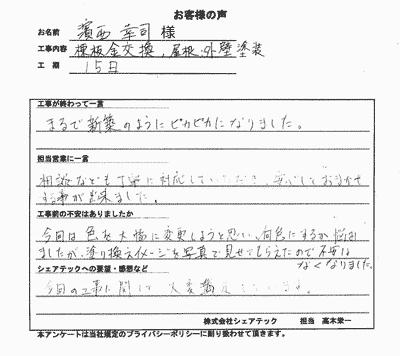 お客様の声
お名前 濱西 幸司 様
工事内容 棟板金交換、屋根・外壁塗装
工期 15日
工事が終わって一言
まるで新築のようにピカピカになりました。
担当営業に一言
相談などにも丁寧に対応していただき、安心しておまかせ
する事が出来ました。
工事前の不安はありましたか
今回は色を大幅に変更しようと思い、何色にするか悩み
ましたが、塗り換えイメージを写真で見せてもらえたので不安は
なくなりました。
シェアテックへの要望・感想など
今回の工事に関して大変満足しています。
株式会社シェアテック 担当 高木栄一
本アンケートは当社規定のプライバシーポリシーに則り扱わせて頂きます。